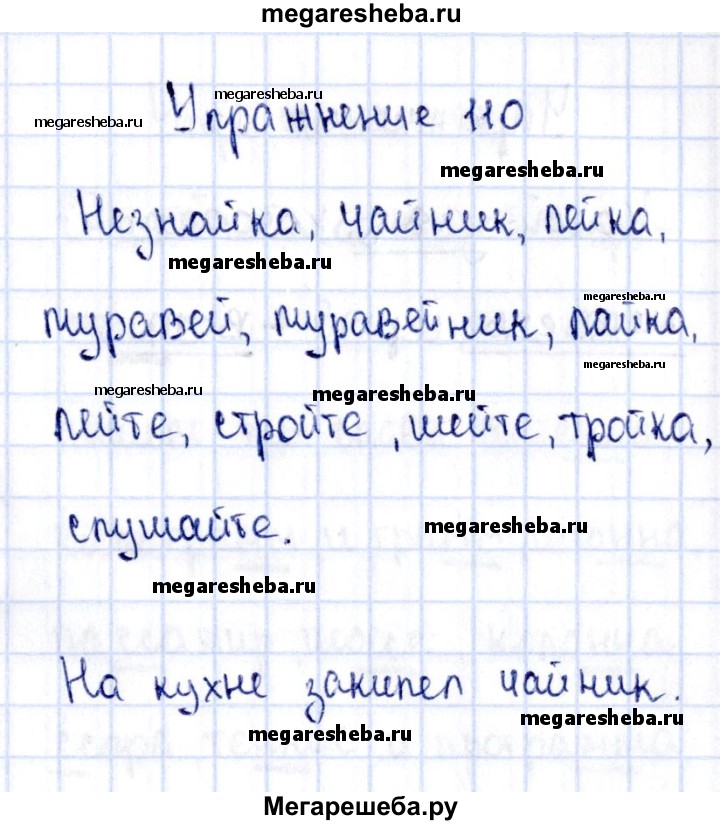 megaresheba.ru
megaresheba.ru
megaresheba.ru
Упражнение 110
megaresheba.ru
Незнайка, чайник, лейка,
megaresheba.ru
megaresheba.ru
муравей, муравейник, лайка,
megaresheba.ru
megaresheba.ru
megaresheba.ru
лейте, стройте, шейте, тройка,
слушайте.
megaresheba.ru
megaresheba.ru
На кухне закипел чайник.
megaresheba.ru
megaresheba.ru
Мегарешеба.ру